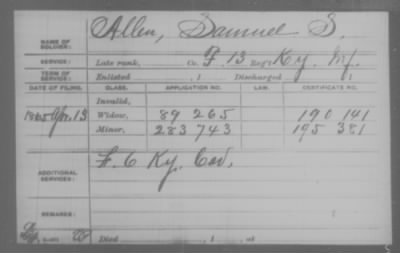 Allen, Samuel S.
NAME OF SOLDIER:
SERVICE: Late rank, Co. F 13 Reg't Ky. Inf.
TERM OF SERVICE: Enlisted , 1 Discharged , 1
DATE OF FILING. CLASS. APPLICATION NO. LAW. CERTIFICATE NO.
Invalid,
1865 Apr. 13 Widow, 89 265 190 141
Minor, 283 743 195 381
ADDITIONAL SERVICES: F. 6 Ky. Cav.
REMARKS:
Died , 1 , at